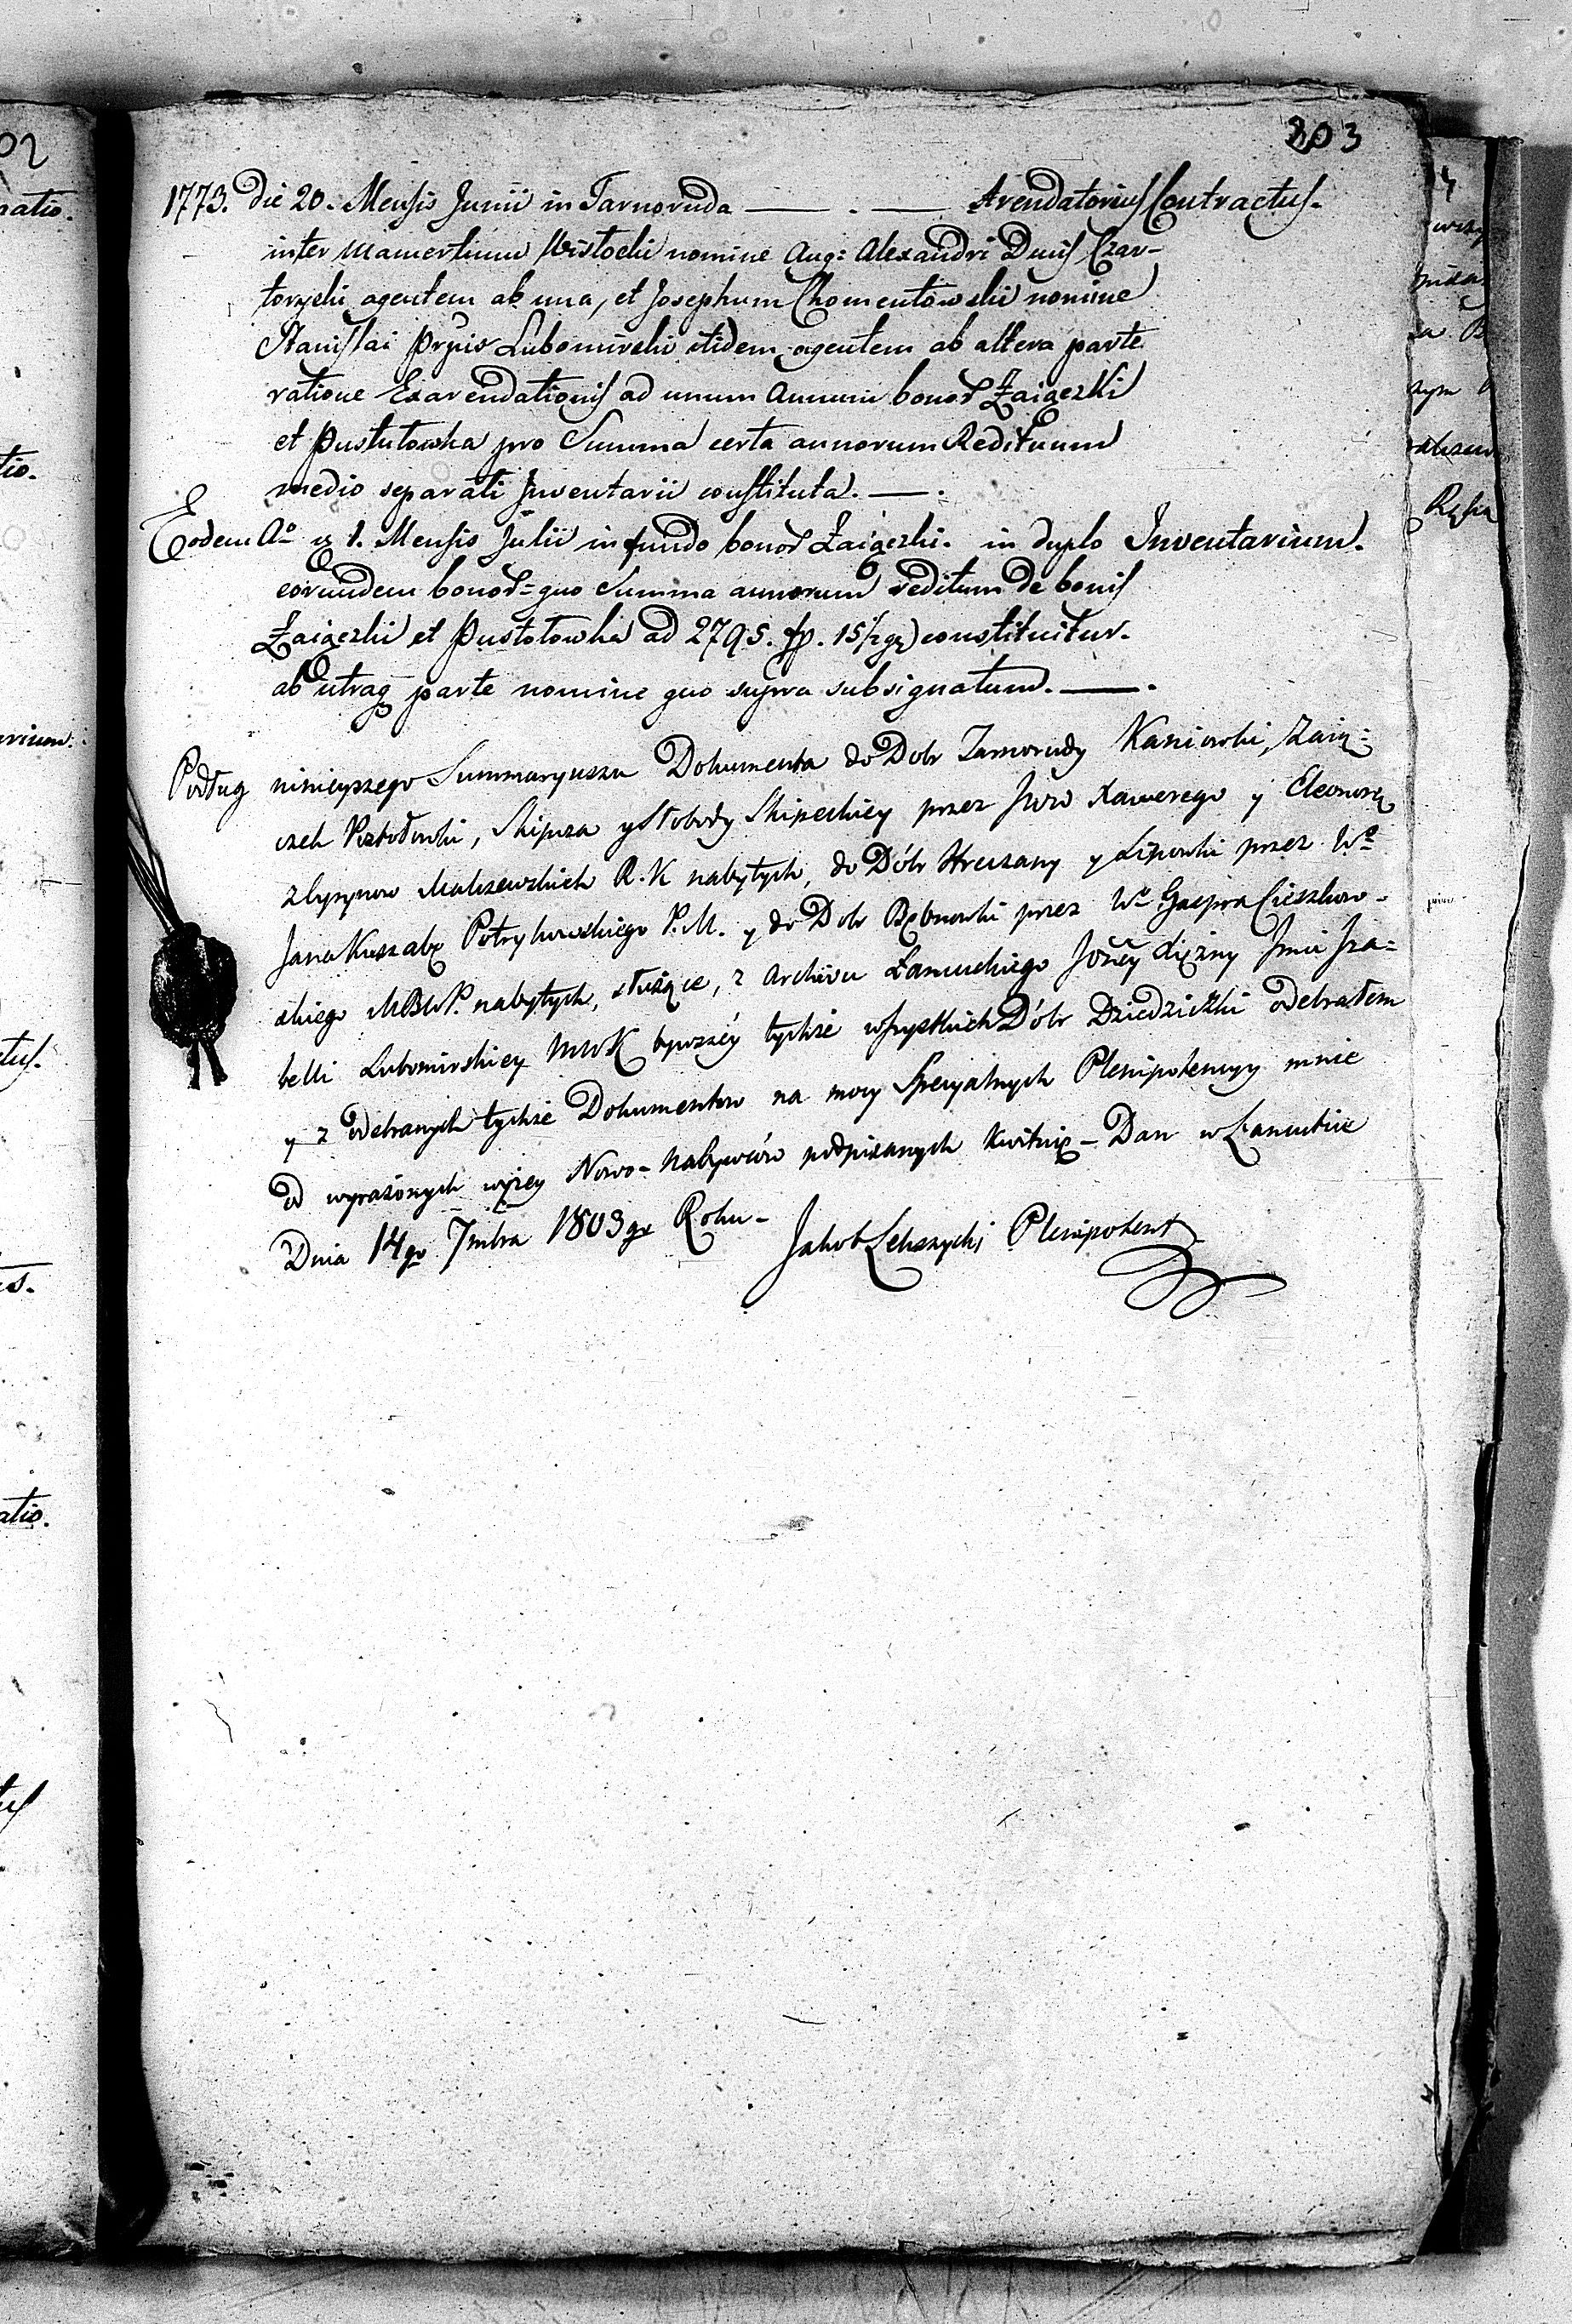 203
1773. Die 20. Mensis Junii in Tarnoruda —— . —— Arendatorius Contractus.
inter Mamertinum Wistocki nomine Aug: Alexandri Ducis Czar-
toryski agentem ab una, et Josephum Chomentowski nomine
Stanislai Prpis Lubomirski itidem agentem ab altera parte
ratione Exarendationis ad unum Annum bonor Zaiączki
et Pustutowka pro Summa certa annorum Redituum
medio separati Inventarii constituta. —— .
Eodem Aº 1. Mensis Julii in fundo bonor Zaiączki. in duplo Inventarium.
eorundem bonor= quo Summa annorum reditum de bonis
Zaiączki et Pustotowka ad 2795. fp. 15 1/2 gr) constituitur.
ab utraq parte nomine quo supra subsignatum. —— .
Podług ninieyszego Summaryuszu Dokumenta do Dobr Tarnorudy Kaniowki, Zaią=
czek Pustołowki, Skipcza y Słobody Skipeckiey przez Jww Xawerego y Eleonorę
Malczewskich R. K nabytych, do Dóbr Hreczany y Lipowki przez Wº
Jana Kuszabę Potrykowskiego P. M. y do Dobr Bębnowki przez Wº Gaspra Cieszkow-
skiego nabytych, służące, z Archivu Łancuckiego JOŚćy Xiężny Jmci Iza=
belli Lubomirskiey MWK bywszéy tychże wszystkich Dóbr Dziedziczki odebrałem
y z odebranych tychże Dokumentow na mocy Specyalnych Plenipotencyy mnie
od wyrażonych wyżey Nowo-Nabywców podpisanych kwituię – Dan w Łancucie
Dnia 14go 7mbra 1803go Roku –
Jakob Lekszycki Plenipotent